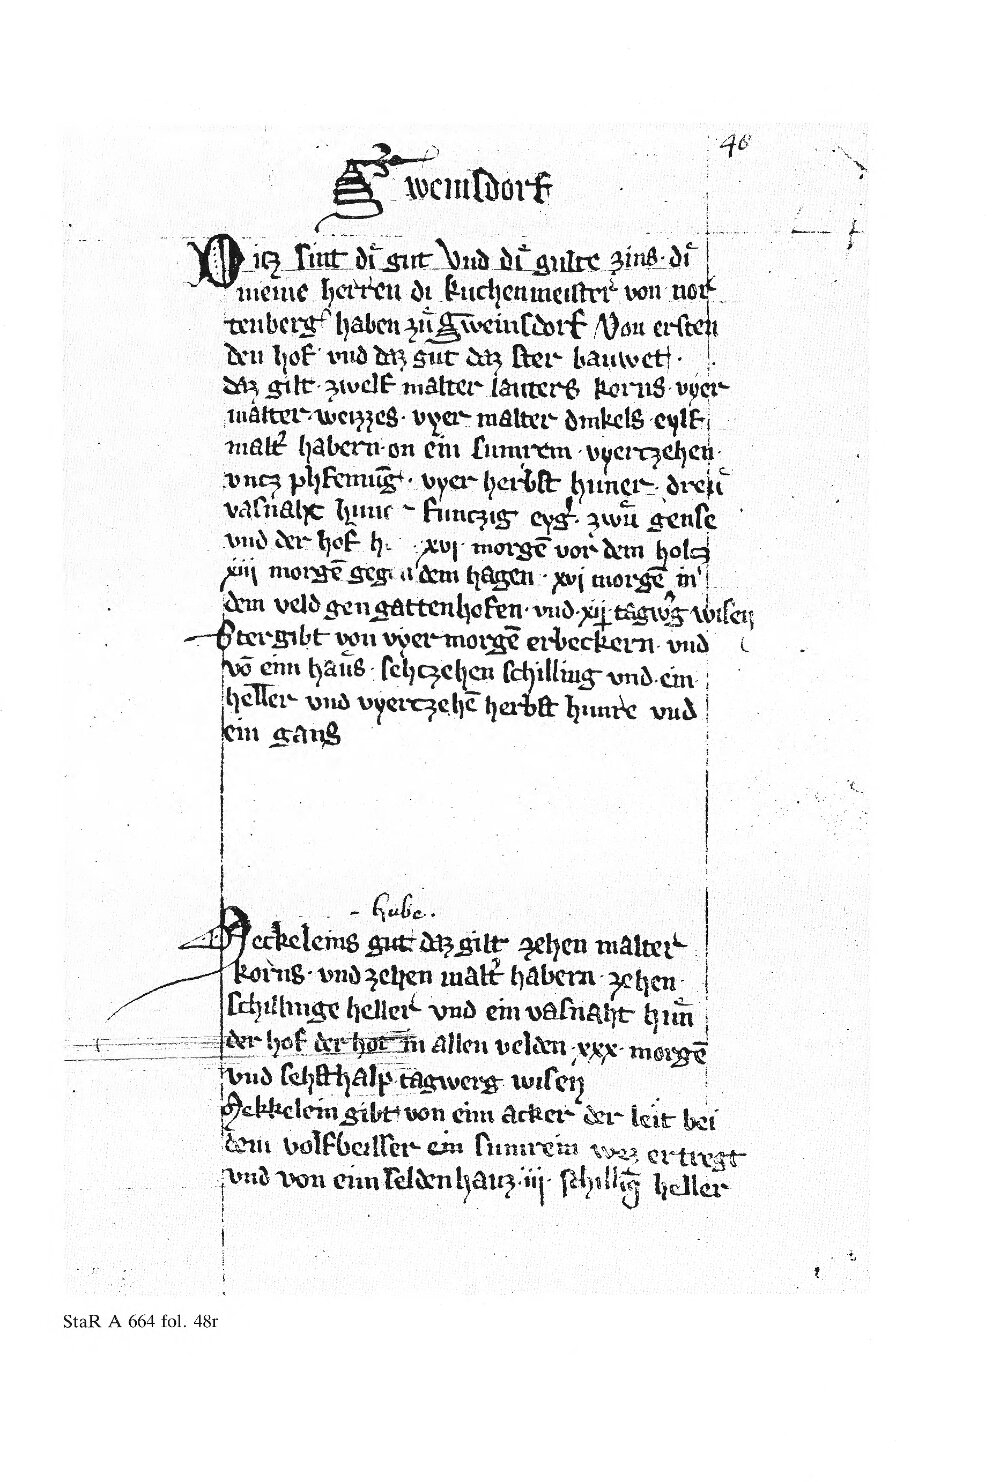 48
Gweinsdorf
Ditz sint di gut Vnd di gulte zins · di
meine herren di kuchenmeister von nor
tenberg haben zu Gweinsdorf Von ersten
den hof vnd daz gut daz ster bauwet ·
daz gilt · zwelf malter lauters korns · vyer
malter · weizzes · vyer malter dinkels · eylf
malt habern · on ein sumrein · vyertzehen ·
vntz phfenning · vyer herbst huner · dreu
vasnaht hune funczig eyg · zwu gense
vnd der hof h xvj morgē vor dem holtz
xiij morgē gegen dem hagen · xvj morgē in
dem veld gen gattenhofen · vnd · xij tagwg wisen
Ster gibt von vyer morgē erbeckern · vnd
vō einn haus · sehczehen schilling vnd · ein
heller vnd vyertzehē herbst hunre vnd
ein gans
hube ·
Aeckeleins gut daz gilt zehen malter
korns · vnd zehen malt habern · zehen
schillinge heller vnd ein vasnaht hun
der hof der hot in allen velden · xxx · morgē
vnd sehsthalp tagwerg wisen
Aekkelein gibt von einn acker der leit bei
dem volfbeisser ein sumrein waz er tregt
vnd von einn seldenhauz · iij · schillig heller
StaR A 664 fol. 48r